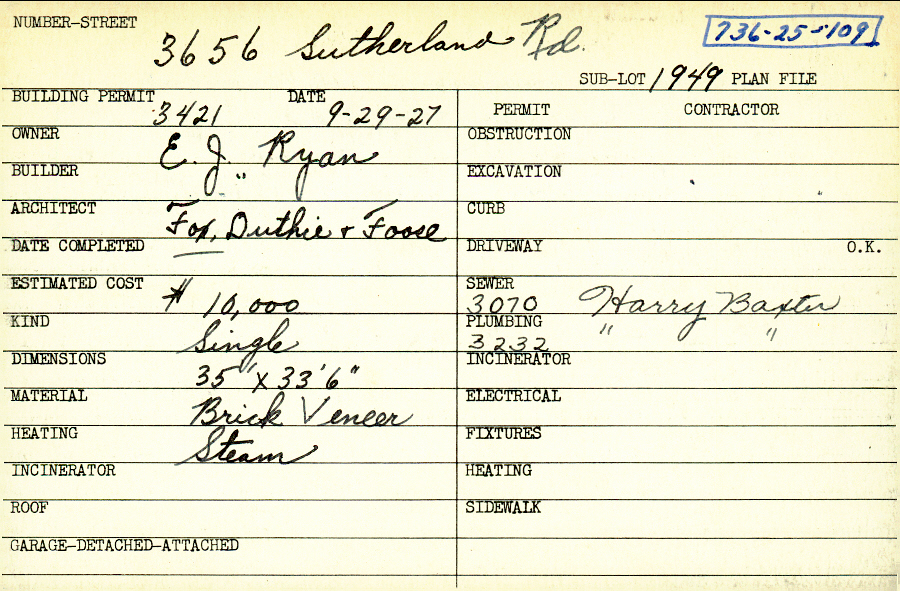 NUMBER-STREET
3656 Sutherland Rd.
736-25-109
SUB-LOT 1949 PLAN FILE
BUILDING PERMIT 3421 DATE 9-29-27
PERMIT CONTRACTOR
OWNER E. J. Ryan
OBSTRUCTION
BUILDER "
EXCAVATION
ARCHITECT Fox, Duthie & Foose
CURB
DATE COMPLETED
DRIVEWAY O.K.
ESTIMATED COST $ 10,000
SEWER 3070 Harry Baxter
KIND Single
PLUMBING 3232 " "
DIMENSIONS 35' X 33'6"
INCINERATOR
MATERIAL Brick Veneer
ELECTRICAL
HEATING Steam
FIXTURES
INCINERATOR
HEATING
ROOF
SIDEWALK
GARAGE-DETACHED-ATTACHED